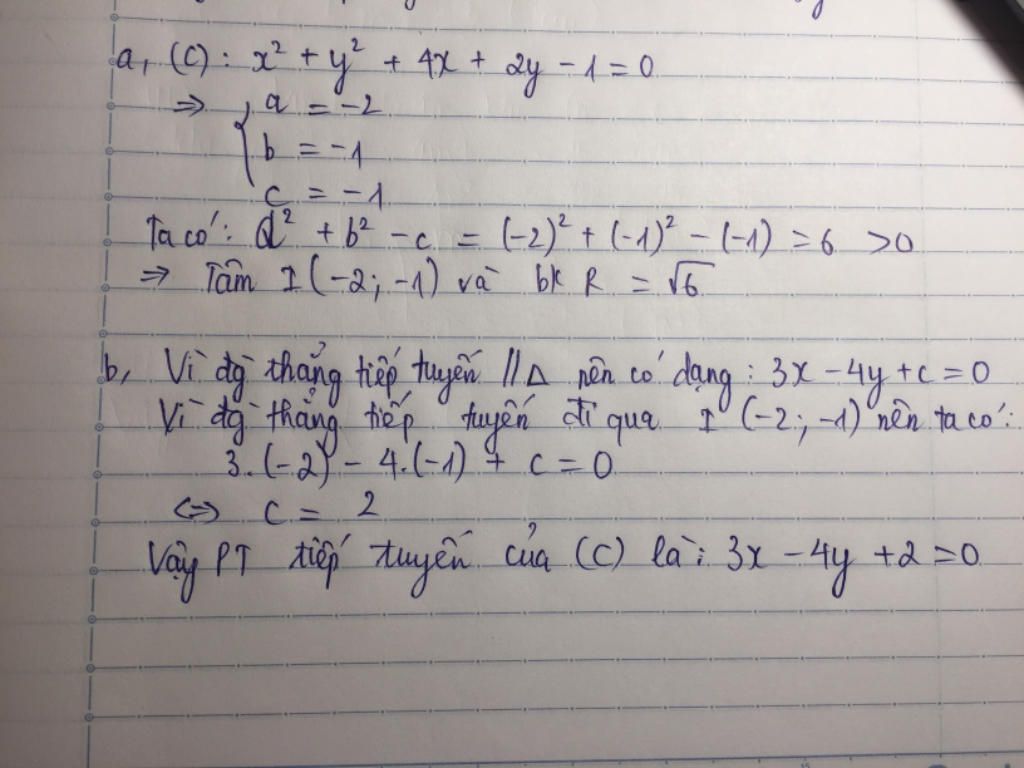 a, (C): x² + y² + 4x + 2y - 1 = 0
⇒ { a = -2
b = -1
c = -1
Ta có: a² + b² - c = (-2)² + (-1)² - (-1) = 6 > 0
⇒ Tâm I (-2; -1) và bk R = √6
b, Vì đg thẳng tiếp tuyến // Δ nên có dạng: 3x - 4y + c = 0
Vì đg thẳng tiếp tuyến đi qua I (-2; -1) nên ta có:
3.(-2) - 4.(-1) + c = 0
⇔ c = 2
Vậy PT tiếp tuyến của (C) là: 3x - 4y + 2 = 0